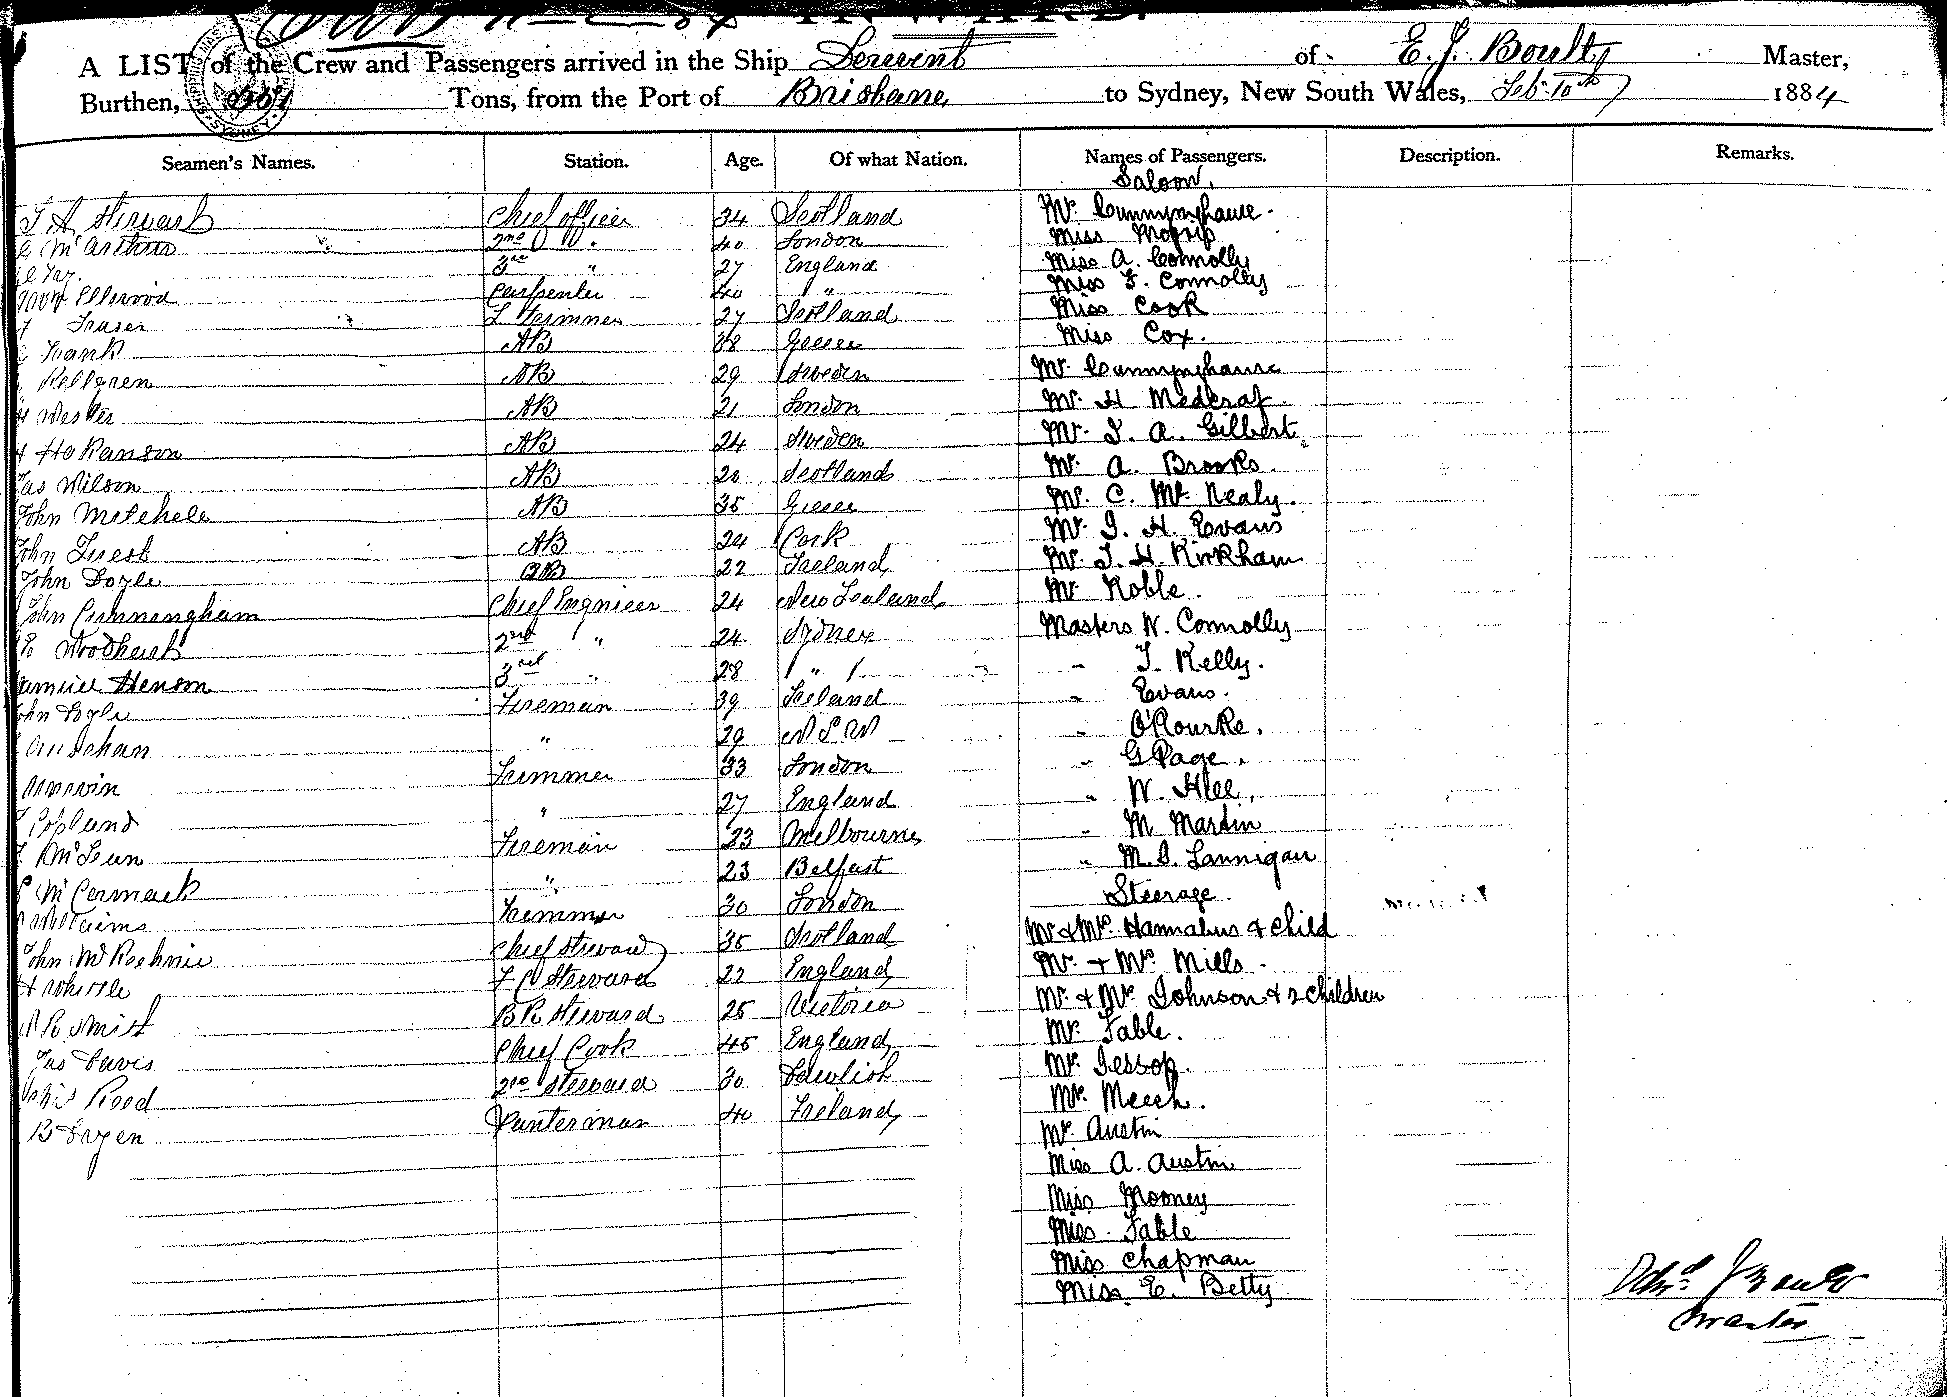 INWARD.
A LIST of the Crew and Passengers arrived in the Ship Derwent of E. J. Boulty Master,
Burthen, Tons, from the Port of Brisbane to Sydney, New South Wales, Feb 10th 1884
Seamen's Names. Station. Age. Of what Nation. Names of Passengers. Description. Remarks.
Saloon.
Stewart Chief officer 34 Scotland Mr. Cunnynghame.
McArthur 2nd 40 London Miss Morris
3rd " 27 England Miss A. Connolly
Ellwood Carpenter 40 " Miss F. Connolly
Fraser L Trimmer 27 Scotland Miss Cook
AB 38 Greece Miss Cox.
Kellgren AB 29 Sweden Mr. Cunnynghame
AB 21 London Mr. H Medcraf
Hokanson AB 24 Sweden Mr. J. A. Gilbert
Jas Wilson AB 20 Scotland Mr. A. Brooks.
John Metchele AB 35 Greece Mr. C. Mc Nealy.
John AB 24 Cork Mr. J. H. Evans
John Doyle OB 22 Ireland Mr. J. H. Kirkham
John Cunnengham Chief Engnieer 24 New Zealand Mr Noble.
2nd " 24 Sydney Masters W. Connolly
Henson 3rd " 28 " " " J. Kelly.
John Doyle Fireman 39 Ireland " Evans.
" 29 N S W " O'Rourke.
Trimmer 33 London " G Page.
Copland " 27 England " W. Hll.
McLean Fireman 23 Melbourne " M Martin
McCormack " 23 Belfast " M. J. Lannigan
Williams Trimmer 30 London Steerage.
John McKechnie Chief Steward 35 Scotland Mr & Mrs. Hannabus & Child
H Whittle F C Steward 22 England Mr. + Mrs. Mills.
Smith B R Steward 25 Victoria Mr. & Mrs Johnson & 2 Children
Jas Davis Chief Cook 45 England Mr. Fable.
Rood 2nd Steward 30 Dawlish Mr. Jessop.
B Panterman 40 Ireland Mr. Meech.
Mr. Austin
Miss A. Austin
Miss Mooney
Miss. Fable
Miss Chapman
Miss. E. Betty
Master